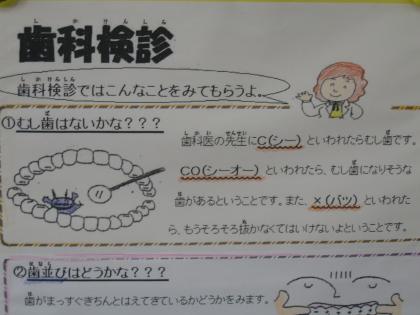 歯科検診
歯科検診ではこんなことをみてもらうよ。
①むし歯はないかな？？？
歯科医の先生にC(シー)といわれたらむし歯です。
CO(シーオー)といわれたら、むし歯になりそうな
歯があるということです。また、×(バツ)といわれた
ら、もうそろそろ抜かなくてはいけないよということです。
②歯並びはどうかな？？？
歯がまっすぐきちんとはえてきているかどうかをみます。